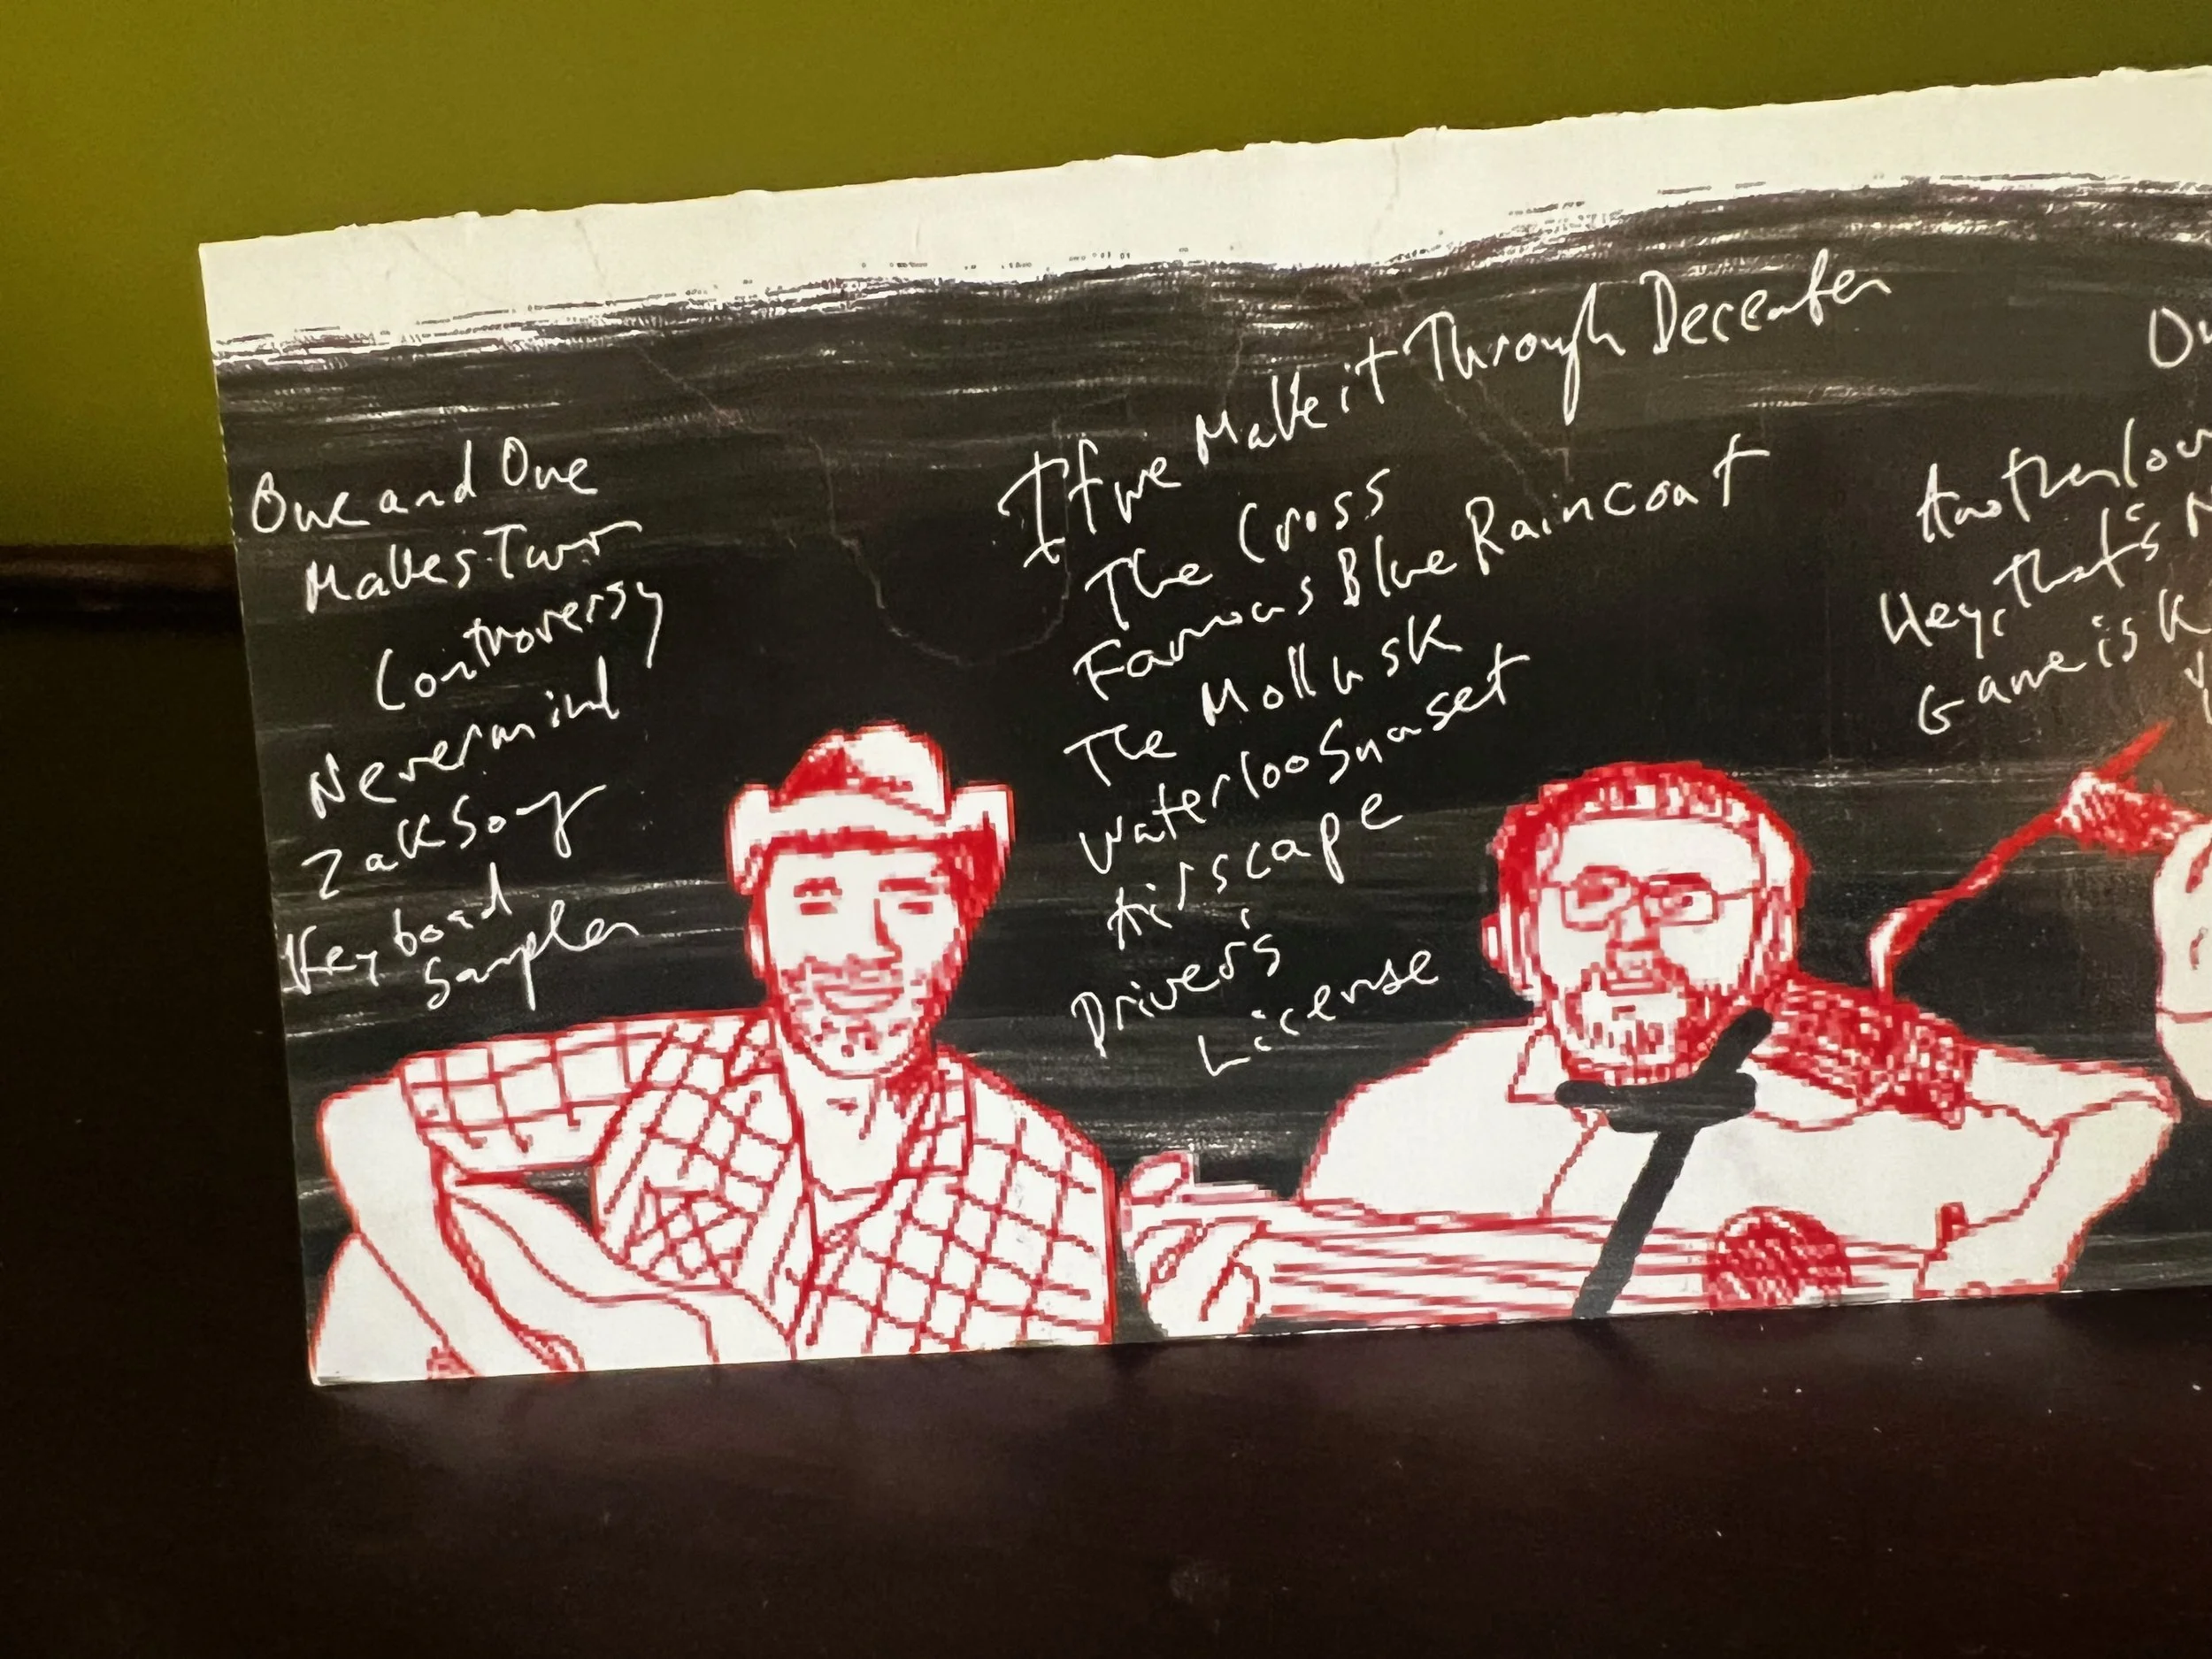 One and One
Makes Two
Controversy
Nevermind
Zak Song
Keyboad
Sampler
If we Make it Through December
The Cross
Famous Blue Raincoat
The Mollusk
Waterloo Sunset
Airscape
Driver's
License
Another lou
Hey, that's N
Game is K